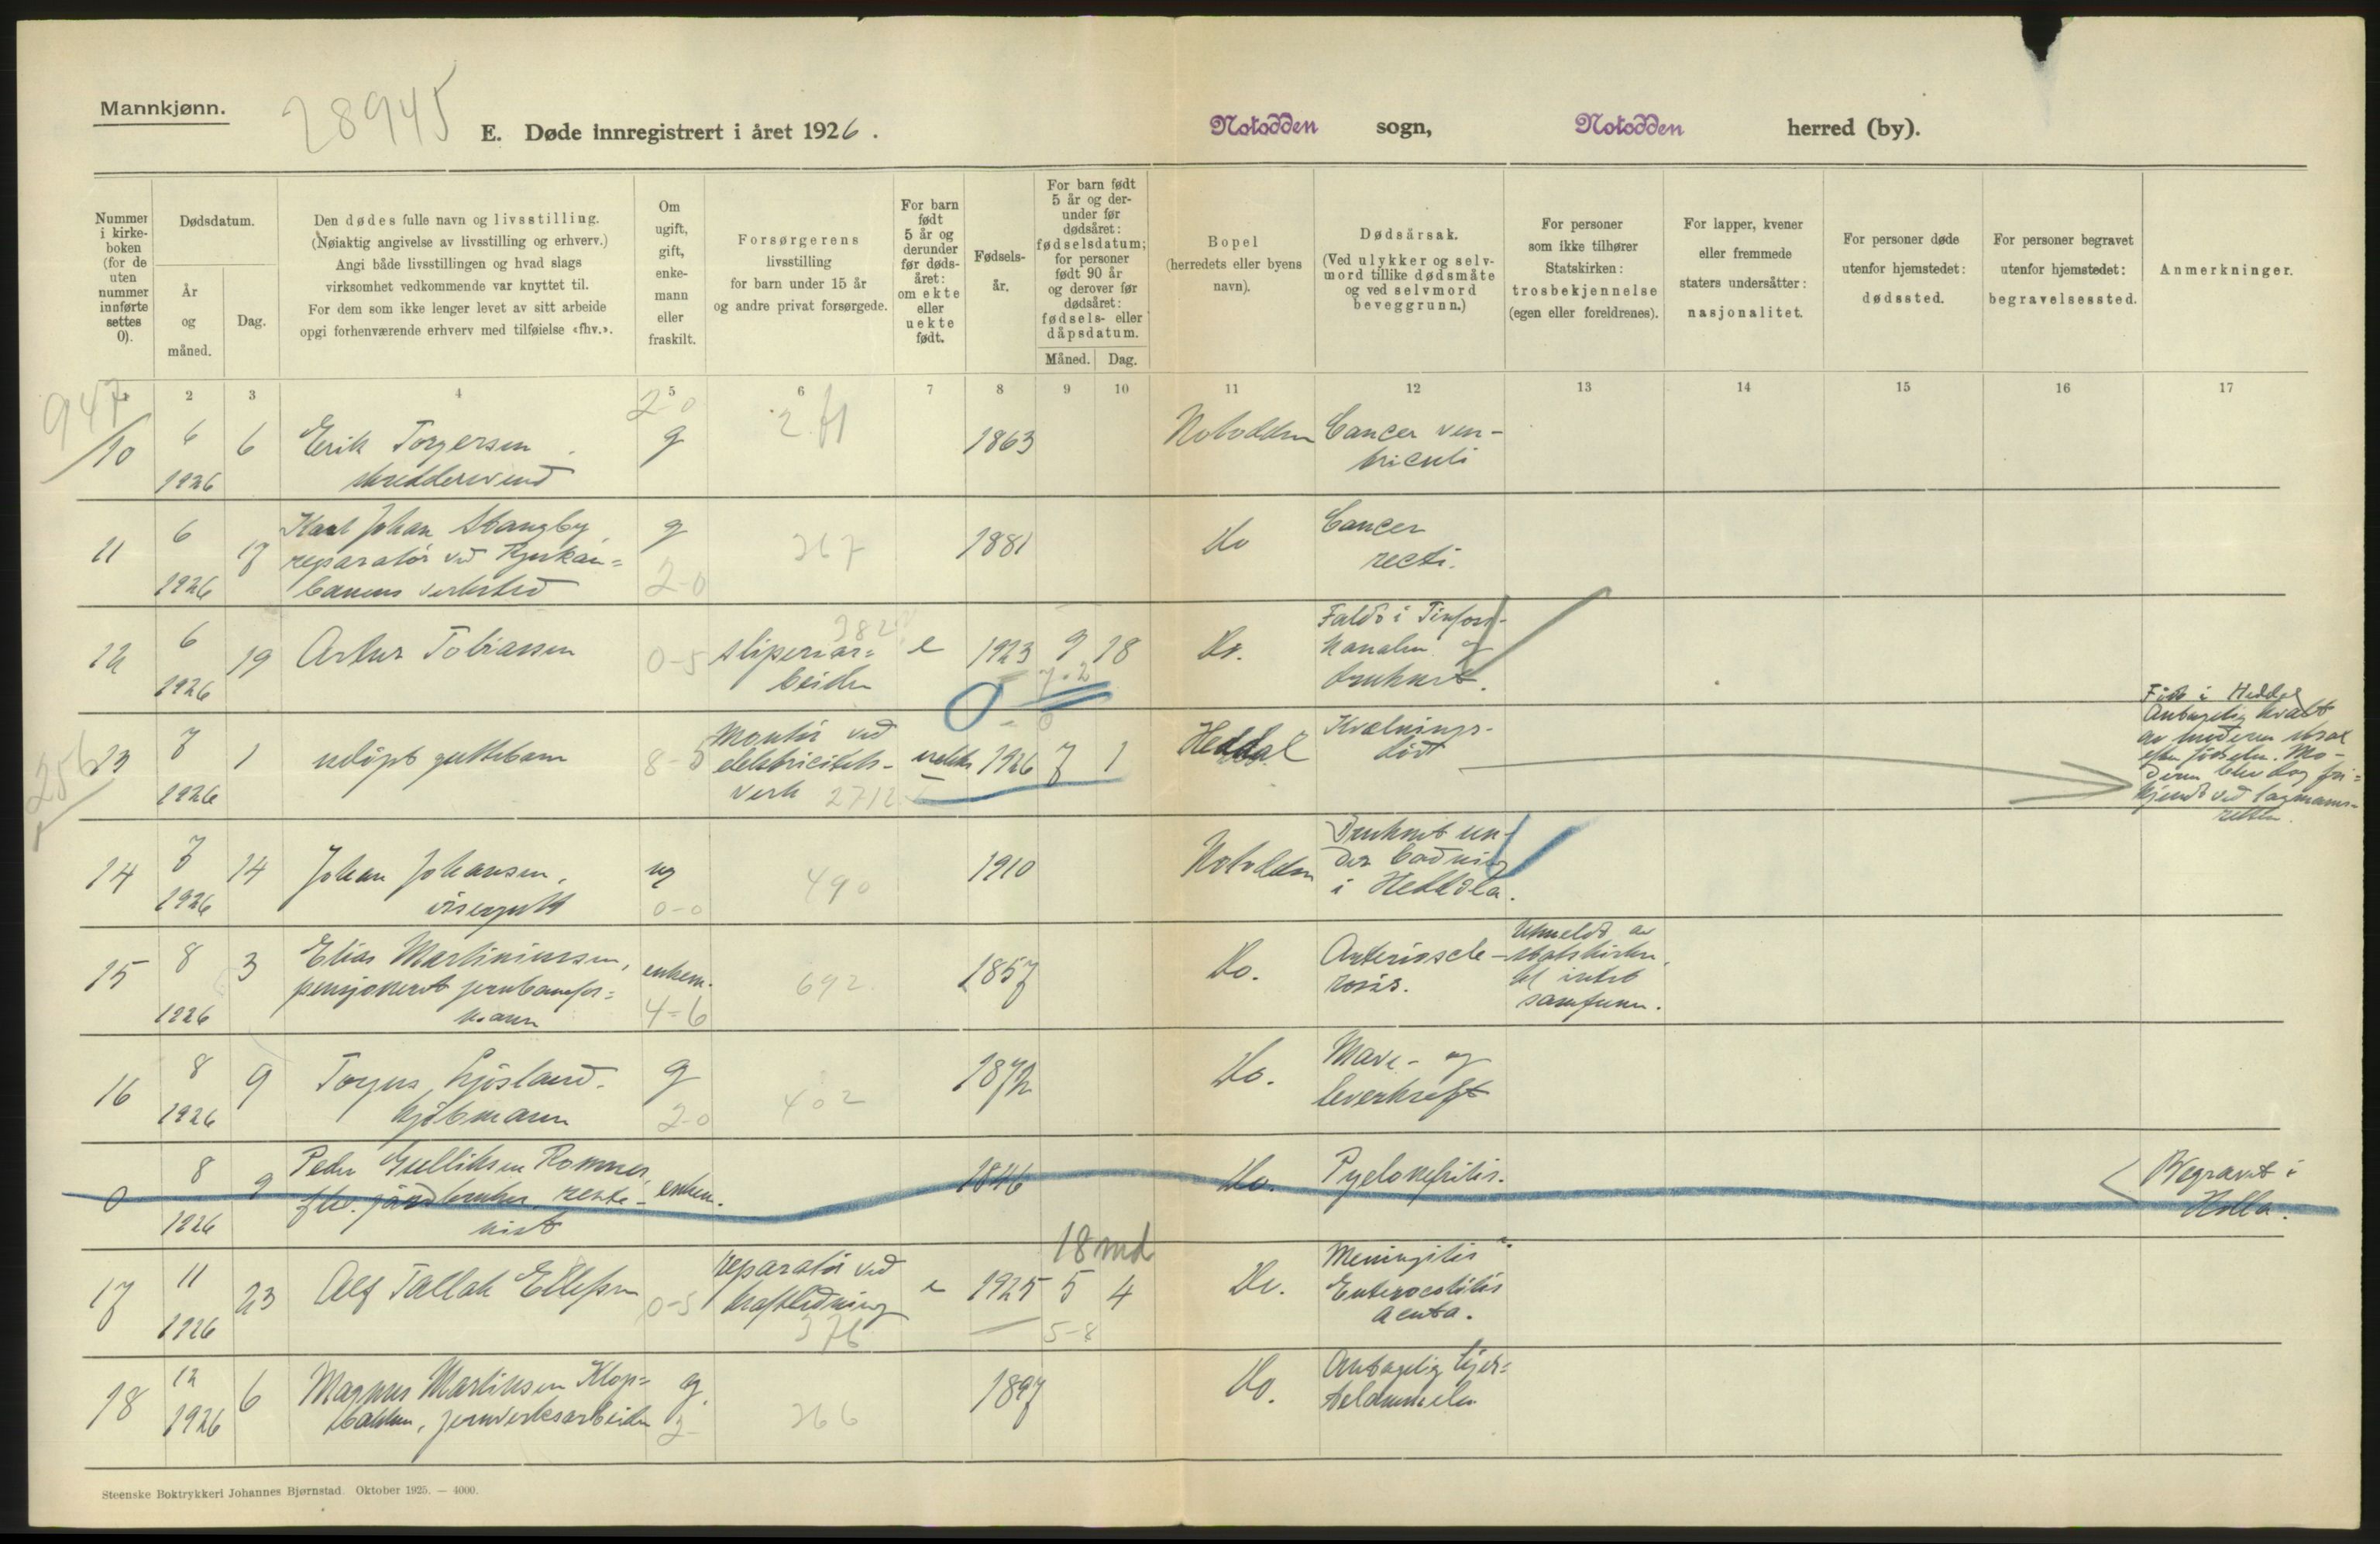 Mannkjønn.
28945
E. Døde innregistrert i året 1926.
Notodden sogn, Notodden herred (by).
Nummer i kirkeboken (for de uten nummer innførte settes 0).
Dødsdatum.
År og måned.
Dag.
Den dødes fulle navn og livsstilling.
(Nøiaktig angivelse av livsstilling og erhverv.)
Angi både livsstillingen og hvad slags
virksomhet vedkommende var knyttet til.
For dem som ikke lenger levet av sitt arbeide
opgi forhenværende erhverv med tilføielse «fhv.».
Om ugift, gift, enkemann eller fraskilt.
Forsørgerens
livsstilling
for barn under 15 år
og andre privat forsørgede.
For barn født 5 år og derunder før dødsåret: om ekte eller uekte født.
Fødselsår.
For barn født 5 år og derunder før dødsåret: fødselsdatum; for personer født 90 år og derover før dødsåret: fødsels- eller dåpsdatum.
Måned.
Dag.
Bopel
(herredets eller byens
navn).
Dødsårsak.
(Ved ulykker og selvmord tillike dødsmåte og ved selvmord beveggrunn.)
For personer
som ikke tilhører
Statskirken:
trosbekjennelse
(egen eller foreldrenes).
For lapper, kvener
eller fremmede
staters undersåtter:
nasjonalitet.
For personer døde
utenfor hjemstedet:
dødssted.
For personer begravet
utenfor hjemstedet:
begravelsessted.
Anmerkninger.
2 3 4 5 6 7 8 9 10 11 12 13 14 15 16 17
947
10 6 1926 6 Erik Torgersen skreddersvend g 2-0 1863 Notodden Cancer ventriculi
11 6 1926 17 Karl Johan Stangby reparatør ved Rjukanbanens verksted g 2-0 267 1881 Do Cancer recti.
12 6 1926 19 Artur Tobiassen 0-5 sliperiarbeider e 1923 9 18 Do. Faldt i Tinfoss-kanalen og druknet.
256
13 7 1926 1 udøpt guttebarn 8-5 Montør ved elektricitetsverk 2712 uekte 1926 7 1 Heddal Kvælningsdød
Født i Heddal
Antagelig kvalt
av moderen strax
efter fødselen. Moderen blev dog frikjendt ved lagmannsretten.
14 7 1926 14 Johan Johansen, visergutt ug 0-0 490 1910 Notodden Druknet under badning i Heddøla.
15 8 1926 3 Elias Martiniussen, pensjonert jernbaneformann enkem. 4-6 692 1857 Do. Arteriosclerosis. Utmeldt av statskirken, til intet samfunn.
16 8 1926 9 Torjus Ljøsland. kjøbmann g 2-0 402 1872 Do. Mave- og leverkreft
0 8 1926 9 Peder Gulliksen Romnes fhv. gårdbruker, enkem. 1846 Do. Pyelonefritis. Begravet i Holla.
17 11 1926 23 Alf Tallak Ellefsen 0-5 reparatør ved kraftledning 376 e 1925 18 md 5 4 5-8 Do. Meningitis Enterocolitis acuta.
18 12 1926 6 Magnus Martinsen Klopbakken, jernverksarbeider g. 2- 266 1897 Do. Antagelig hjertelammelse
Steenske Boktrykkeri Johannes Bjørnstad. Oktober 1925. — 4000.